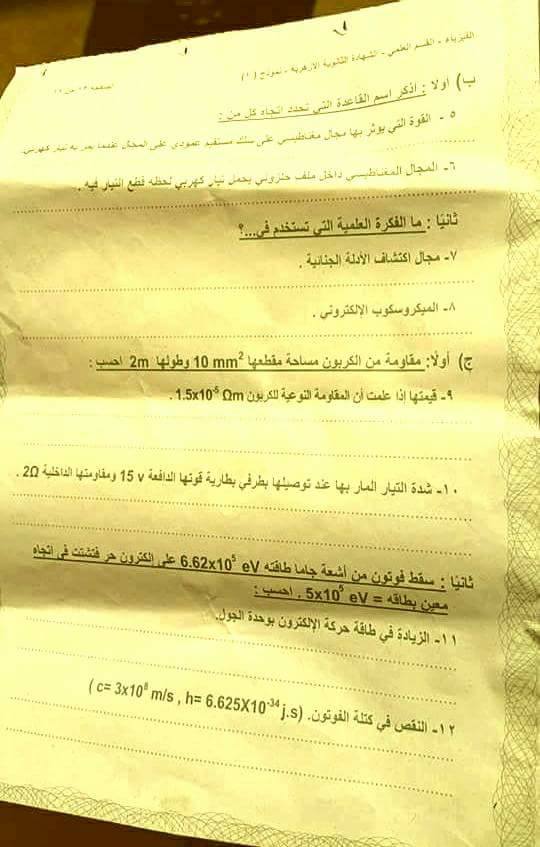 الفيزياء - القسم العلمي - الشهادة الثانوية الأزهرية - نموذج (١)
ب) أولاً : أذكر اسم القاعدة التي تحدد اتجاه كل من :
٥ - القوة التي يؤثر بها مجال مغناطيسي على سلك مستقيم عمودي على المجال عندما يمر به تيار كهربي
٦- المجال المغناطيسي داخل ملف حلزوني يحمل تيار كهربي لحظة قطع التيار فيه .
ثانياً : ما الفكرة العلمية التي تستخدم في...؟
٧- مجال اكتشاف الأدلة الجنائية .
٨- الميكروسكوب الإلكتروني .
ج) أولاً: مقاومة من الكربون مساحة مقطعها 10 mm² وطولها 2m احسب :
٩- قيمتها إذا علمت أن المقاومة النوعية للكربون 1.5x10⁻⁵ Ωm .
١٠- شدة التيار المار بها عند توصيلها بطرفي بطارية قوتها الدافعة 15 v ومقاومتها الداخلية 2Ω .
ثانياً : سقط فوتون من أشعة جاما طاقته 6.62x10⁵ eV على إلكترون حر فتشتت في اتجاه
معين بطاقة = 5x10⁵ eV . احسب :
١١- الزيادة في طاقة حركة الإلكترون بوحدة الجول.
١٢- النقص في كتلة الفوتون. ( c= 3x10⁸ m/s , h= 6.625X10⁻³⁴ j.s)